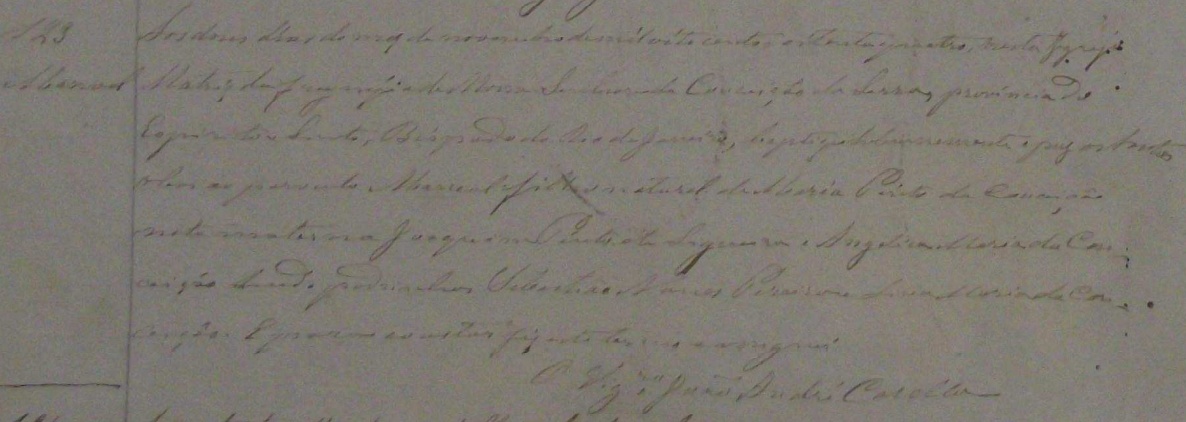 123
Manoel
Aos dous dias do mez de novembro de mil oito centos oitenta quatro, nesta Igreja
Matriz da freguesia de Nossa Senhora da Conceição da Serra, provincia do
Espirito Santo, Bispado do Rio de Janeiro, baptizei solemnemente e puz os Santos
oleos ao parvulo Manoel filho natural de Maria Pinto da Conceição
neto materno Joaquim Pinto de Siqueira e Angelica Maria da Con
ceição sendo padrinhos Sebastião Nunes Pereira e Maria da Con
ceição. E para constar fiz este termo e assignei
O Vigº João André Casella